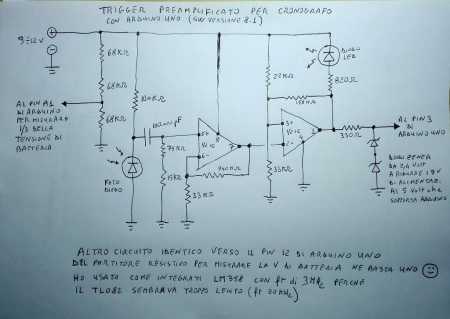 TRIGGER PREAMPLIFICATO PER CRONOGRAFO
CON ARDUINO UNO (SW VERSIONE 8.1)
9÷12V
68KΩ
68KΩ
68KΩ
AL PIN A1
DI ARDUINO
PER MISURARE
1/3 DELLA
TENSIONE DI
BATTERIA
FOTO
DIODO
22KΩ
DIODO
LED
820Ω
33KΩ
33KΩ
330Ω
AL PIN 3
DI
ARDUINO UNO
DIODI ZENER
DI ALIMENTAZ.
AI 5 VOLT CHE
SOPPORTA ARDUINO
ALTRO CIRCUITO IDENTICO VERSO IL PIN 12 DI ARDUINO UNO
DEL PARTITORE RESISTIVO PER MISURARE LA V DI BATTERIA NE BASTA UNO
HO USATO COME INTEGRATI LM358 CON ft di 3MHz PERCHÉ
IL TL082 SEMBRAVA TROPPO LENTO